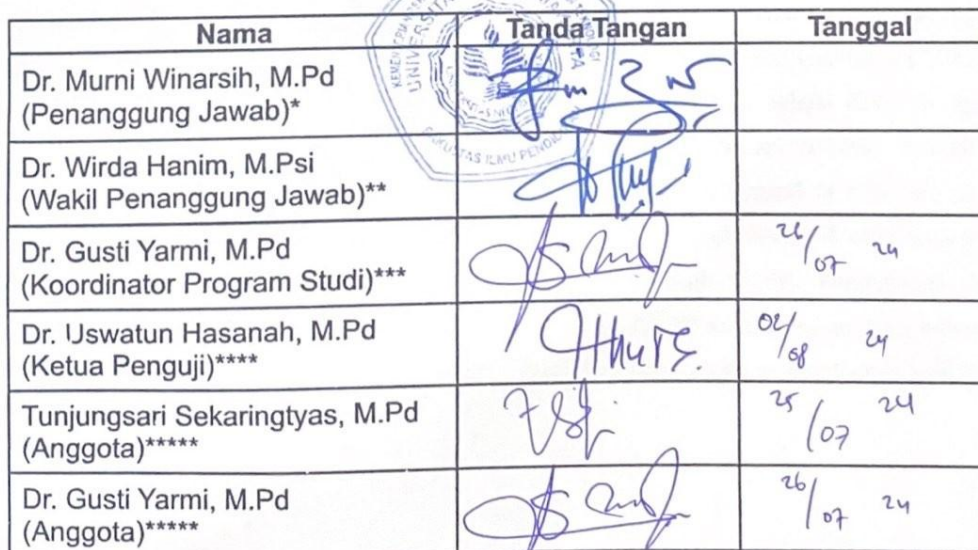 Nama Tanda Tangan Tanggal
Dr. Murni Winarsih, M.Pd
(Penanggung Jawab)*
Dr. Wirda Hanim, M.Psi
(Wakil Penanggung Jawab)**
Dr. Gusti Yarmi, M.Pd
(Koordinator Program Studi)*** 26/07 24
Dr. Uswatun Hasanah, M.Pd
(Ketua Penguji)**** 02/08 24
Tunjungsari Sekaringtyas, M.Pd
(Anggota)***** 25/07 24
Dr. Gusti Yarmi, M.Pd
(Anggota)***** 26/07 24